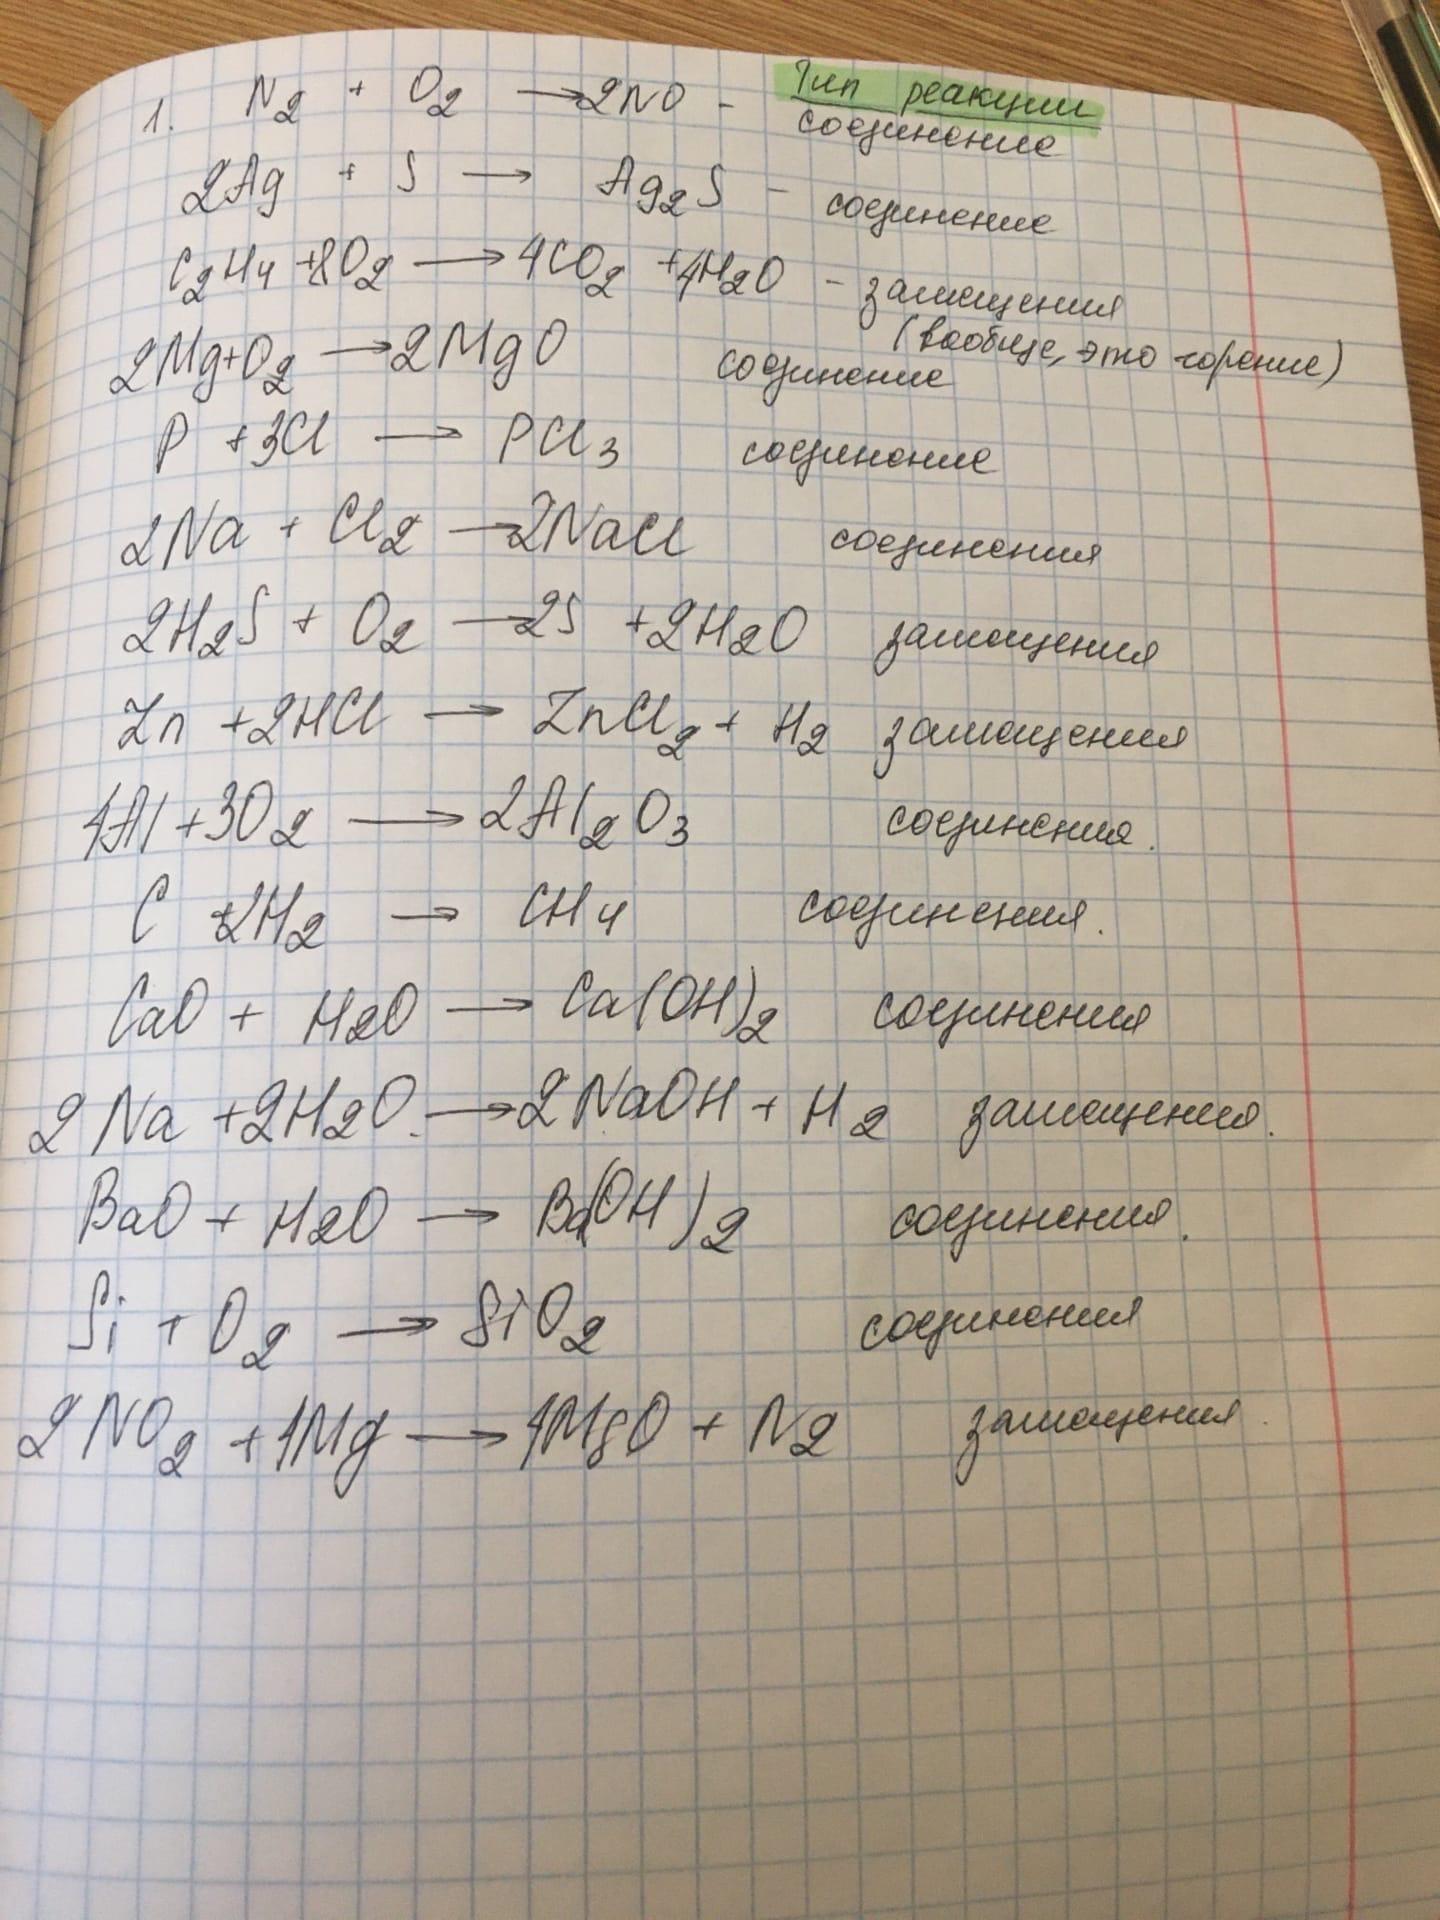 1. N2 + O2 → 2NO - Тип реакции
соединение
2Ag + S → Ag2S - соединение
C2H4 + 8O2 → 4CO2 + 4H2O - замещения
(вообще, это горение)
2Mg + O2 → 2MgO соединение
P + 3Cl → PCl3 соединение
2Na + Cl2 → 2NaCl соединения
2H2S + O2 → 2S + 2H2O замещения
Zn + 2HCl → ZnCl2 + H2 замещения
4Al + 3O2 → 2Al2O3 соединения.
C + 2H2 → CH4 соединения.
CaO + H2O → Ca(OH)2 соединения
2Na + 2H2O. → 2NaOH + H2 замещения.
BaO + H2O → Ba(OH)2 соединения.
Si + O2 → SiO2 соединения
2NO2 + 4Mg → 4MgO + N2 замещения.